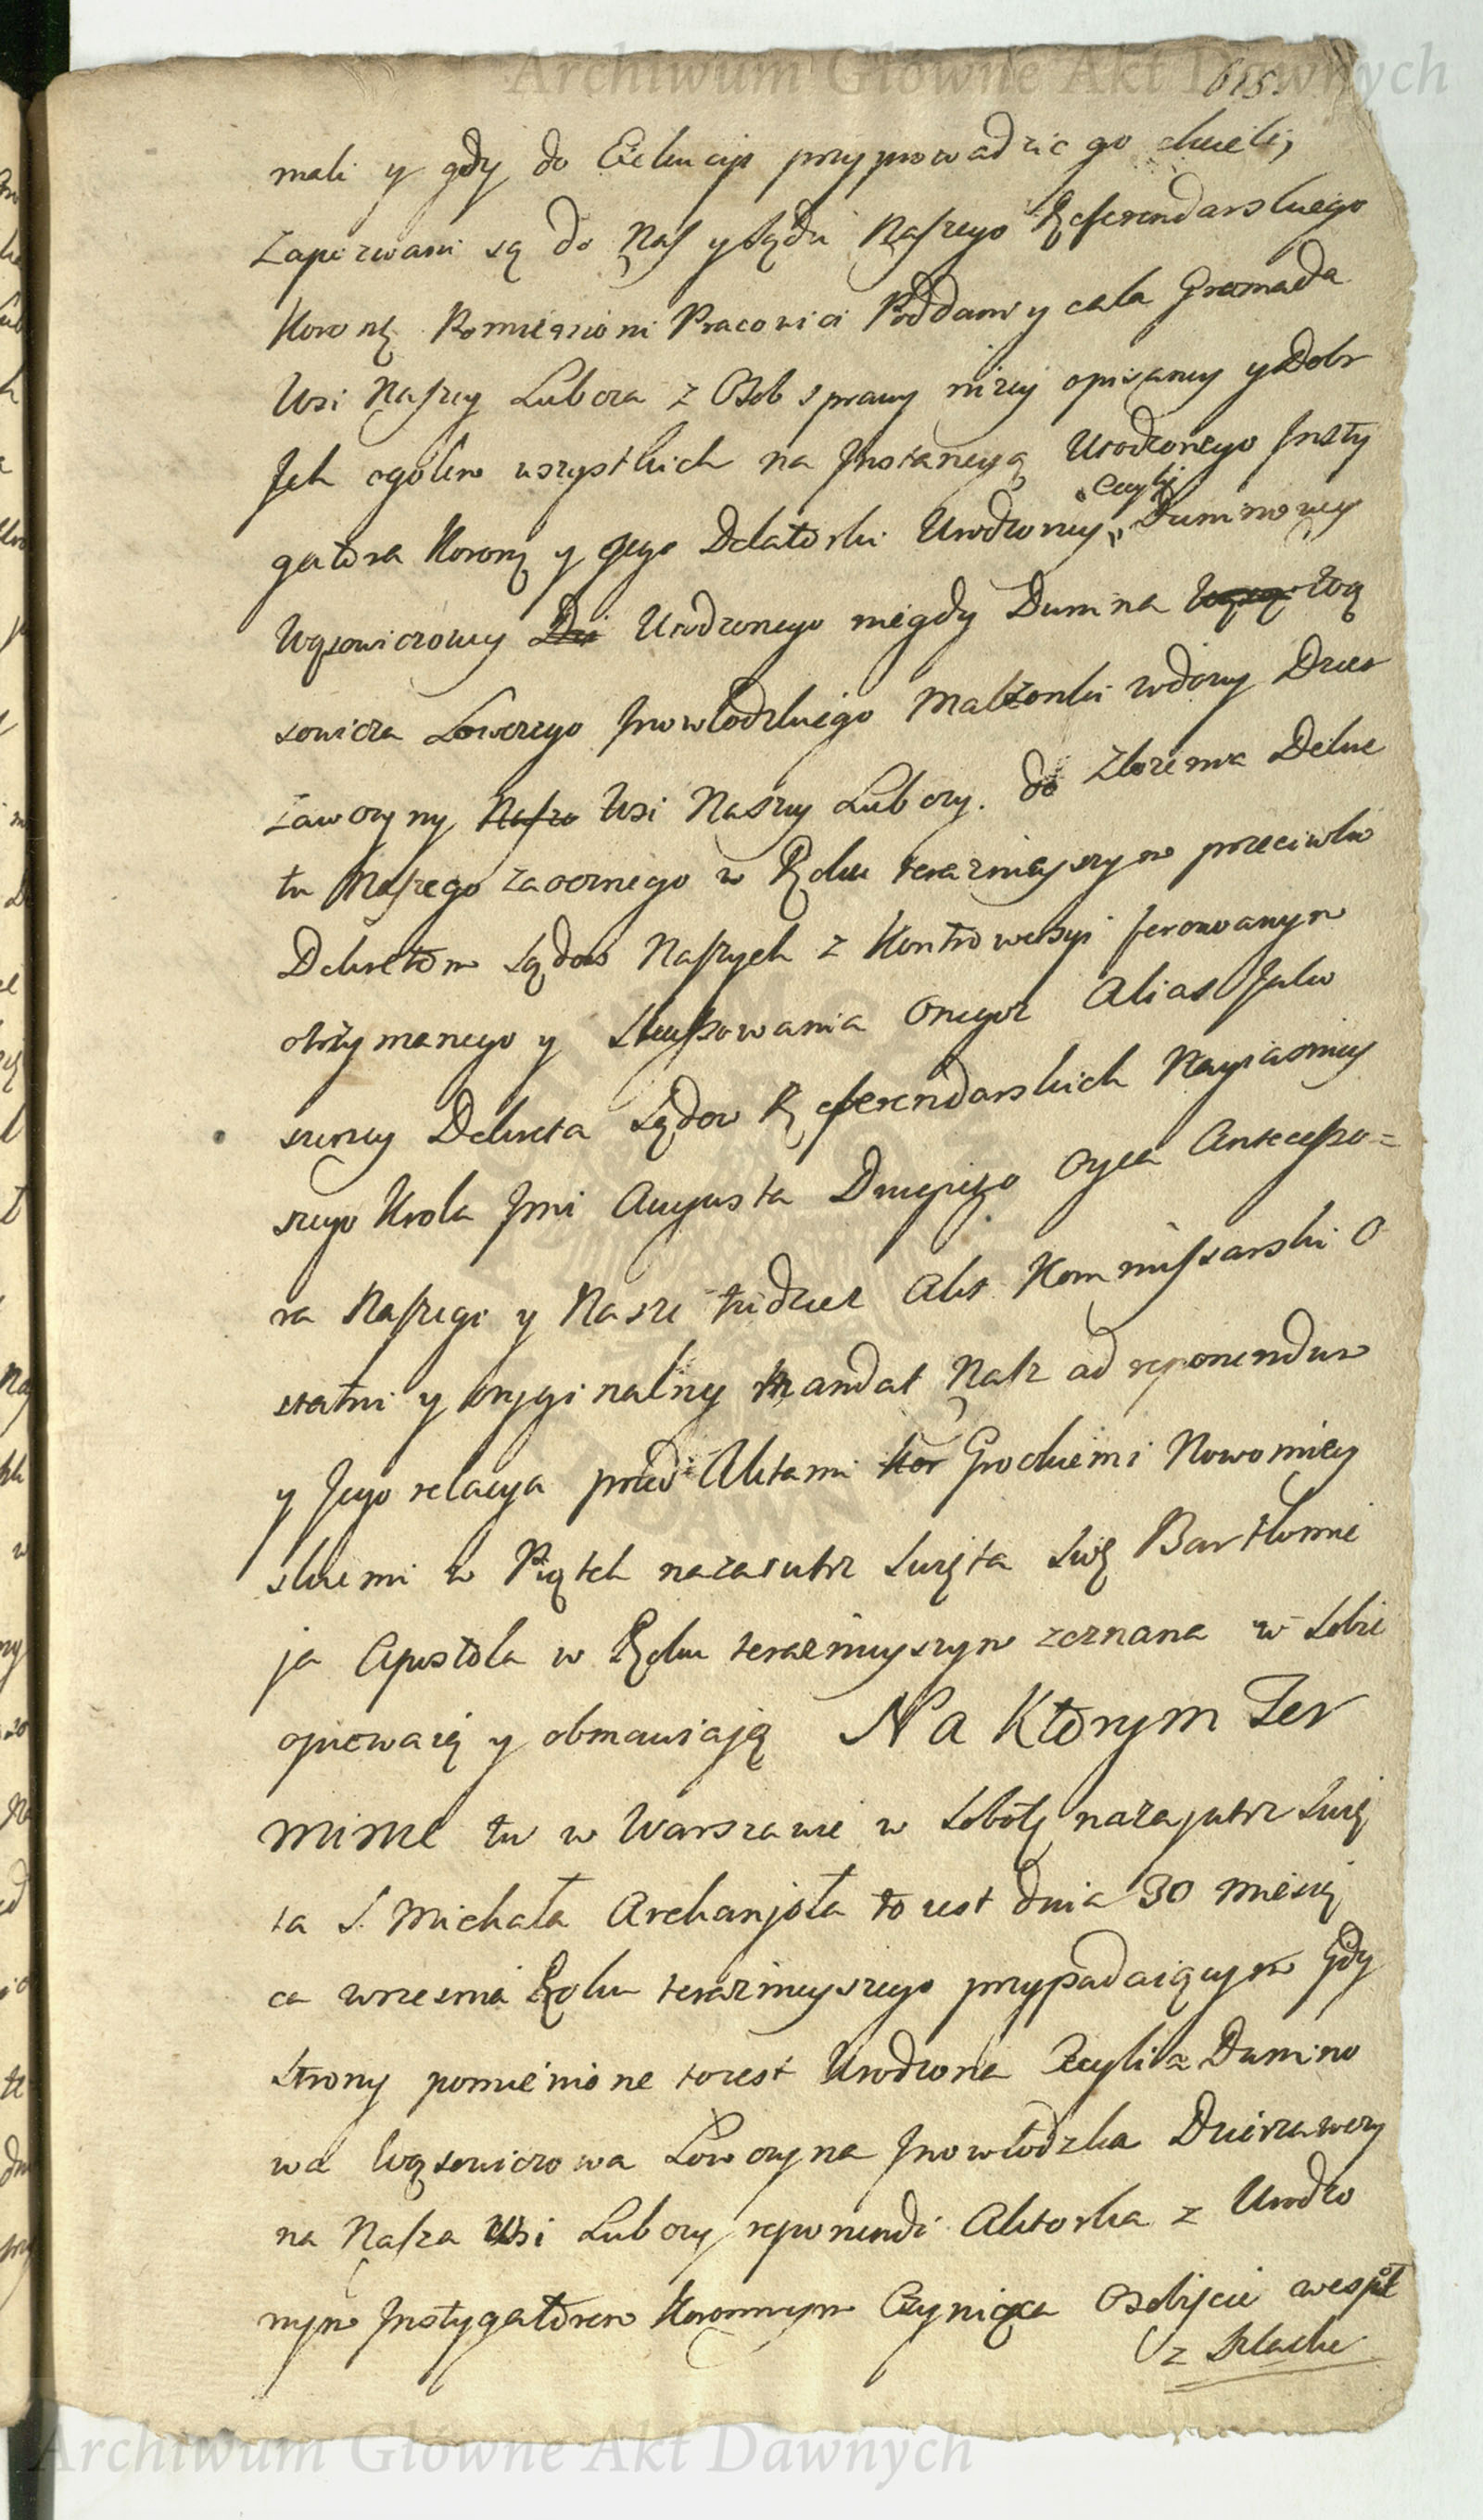 Archiwum Główne Akt Dawnych
615.
mali y gdy do Exekucyi przyprowadzic go chcieli,
Zapozwani są do Nas y Sądu Naszego Referendarskiego
Koronę Pomienioni Pracowici Poddani y cała Gromada
Wsi Naszey Lubcza z Osob sprawy niżey opisaney y Dobr
Jch ogolem wszystkich na Jnstancyą Urodzonego Jnsty
Cecylij
gatora Koronę y Jego Delatorki Urodzoney Duninowey
Wąsowiczowey Du Urodzonego niegdy Dunina Wąso Wą
sowicza Łowczego Jnowłodzkiego Małżonki wdowy Dzier
zawczyny Nasze Wsi Naszey Lubczy. do Złożenia Dekre
tu Naszego zaocznego w Roku teraznieyszym przeciwko
Dekretom Sądow Naszych z Kontrowersyi ferowanym
otrzymanego y Skassowania Onegoż Alias Jako
szerzey Dekreta Sądow Referendarskich Nayiasniey
szego Krola Jmi Augusta Drugiego Oyca Antecesso=
ra Naszego y Nasze tudziez Akt Kommissarski O
statni y oryginalny Mandat Nasz ad reponendum
y Jego relacya przed Aktami Kor Grodzkiemi Nowomiey
skiemi w Piątek nazaiutrz Swięta Swię Bartłomie
ja Apostoła w Roku teraznieyszym zeznana w Sobie
opiewaią y obmawiają Na Ktorym Ter
minie tu w Warszawie w Sobotę nazajutrz Swię
ta S. Michała Archanjoła to iest dnia 30 miesią
ca wrzesnia Roku teraznieyszego przypadaiącym Gdy
Strony pomienione toiest Urodzona Cecylia Dunino
wa Wąsowiczowa Łowczyna Jnowłodzka Dzierzawczy
na Nasza Wsi Lubczy reponendi Aktorka z Urodzo
nym Jnstygatorem Koronnym Czyniąca Osobiscie wespoł
z Szlache
Archiwum Główne Akt Dawnych